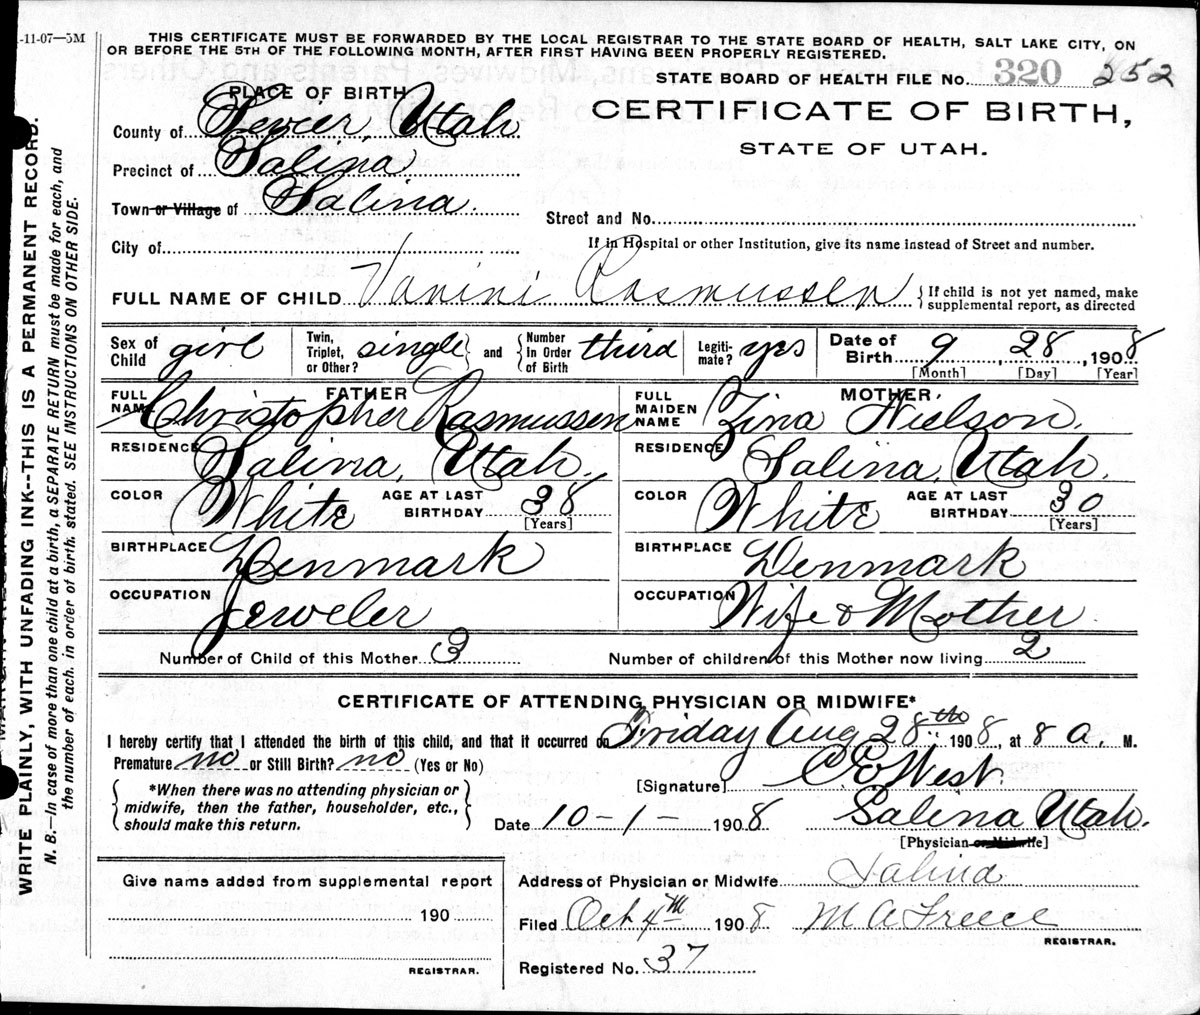 -11-07—5M
THIS CERTIFICATE MUST BE FORWARDED BY THE LOCAL REGISTRAR TO THE STATE BOARD OF HEALTH, SALT LAKE CITY, ON
OR BEFORE THE 5TH OF THE FOLLOWING MONTH, AFTER FIRST HAVING BEEN PROPERLY REGISTERED.
STATE BOARD OF HEALTH FILE No. 320 252
PLACE OF BIRTH
CERTIFICATE OF BIRTH,
STATE OF UTAH.
County of Sevier, Utah
Precinct of Salina
Town or Village of Salina.
Street and No.
City of
If in Hospital or other Institution, give its name instead of Street and number.
FULL NAME OF CHILD Vanini Rasmussen { If child is not yet named, make supplemental report, as directed
Sex of Child girl Twin, Triplet, or Other? single and Number in Order of Birth third Legiti-mate? yes Date of Birth 9, 28, 1908
[Month] [Day] [Year]
FATHER MOTHER
FULL NAME Christopher Rasmussen FULL MAIDEN NAME Zina Nielson.
RESIDENCE Salina, Utah. RESIDENCE Salina, Utah.
COLOR White AGE AT LAST BIRTHDAY 38 [Years] COLOR White AGE AT LAST BIRTHDAY 30 [Years]
BIRTHPLACE Denmark BIRTHPLACE Denmark
OCCUPATION Jeweler OCCUPATION Wife & Mother
Number of Child of this Mother 3 Number of children of this Mother now living 2
CERTIFICATE OF ATTENDING PHYSICIAN OR MIDWIFE*
I hereby certify that I attended the birth of this child, and that it occurred on Friday Aug 28th 1908, at 8 a. M.
Premature no or Still Birth? no (Yes or No)
[Signature] West.
*When there was no attending physician or
midwife, then the father, householder, etc.,
should make this return.
Date 10-1- 1908 Salina Utah.
[Physician or Midwife]
Give name added from supplemental report
190
REGISTRAR.
Address of Physician or Midwife Salina
Filed Oct 4TH 1908 M A Freece
REGISTRAR.
Registered No. 37
WRITE PLAINLY, WITH UNFADING INK--THIS IS A PERMANENT RECORD.
N. B.—In case of more than one child at a birth, a SEPARATE RETURN must be made for each, and
the number of each, in order of birth, stated. SEE INSTRUCTIONS ON OTHER SIDE.